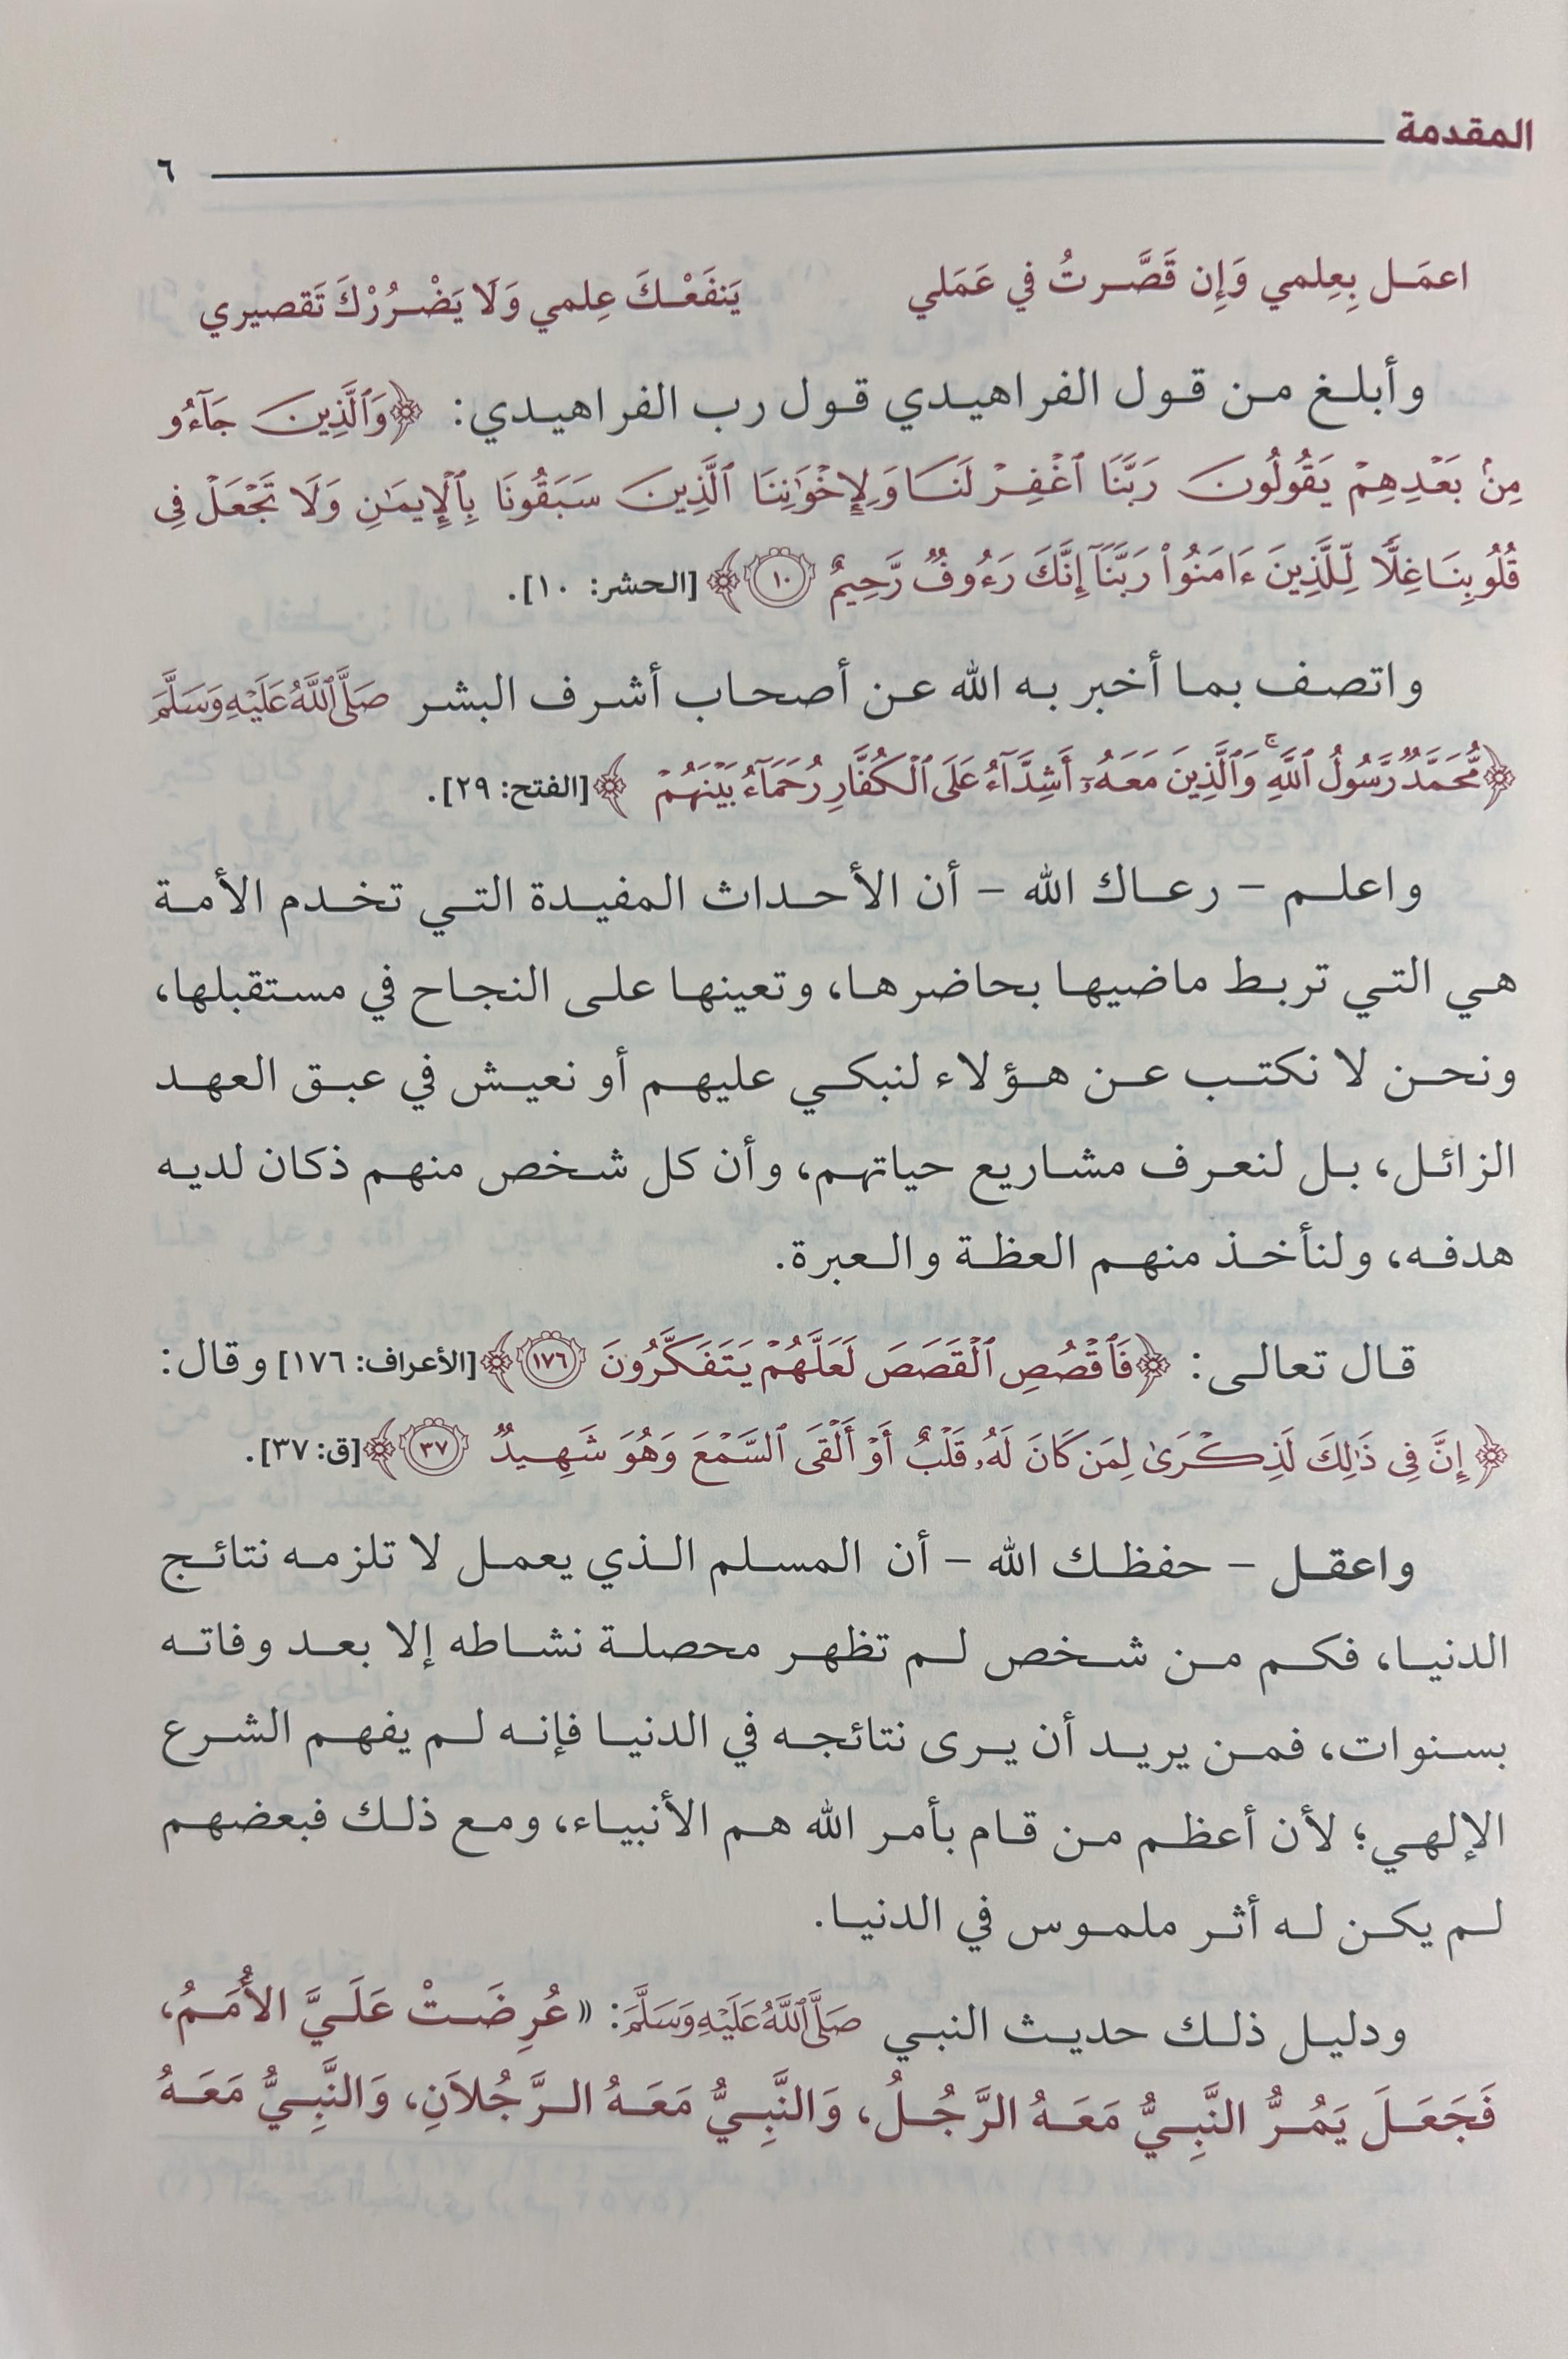 المقدمة
٦
اعمَـل بِعِلمي وَإِن قَصَّـرتُ في عَمَلي يَنفَعْـكَ عِلمي وَلَا يَضْـرُرْكَ تَقصيري
وأبلـغ مـن قـول الفراهيـدي قـول رب الفراهيـدي: ﴿وَٱلَّذِينَ جَآءُو
مِنۢ بَعۡدِهِمۡ يَقُولُونَ رَبَّنَا ٱغۡفِرۡ لَنَا وَلِإِخۡوَٰنِنَا ٱلَّذِينَ سَبَقُونَا بِٱلۡإِيمَٰنِ وَلَا تَجۡعَلۡ فِى
قُلُوبِنَا غِلّٗا لِّلَّذِينَ ءَامَنُواْ رَبَّنَآ إِنَّكَ رَءُوفٞ رَّحِيمٌ ١٠﴾ [الحشر: ١٠].
واتصـف بمـا أخبـر بـه الله عـن أصحـاب أشـرف البشـر صَلَّى ٱللَّهُ عَلَيْهِ وَسَلَّمَ
﴿مُّحَمَّدٞ رَّسُولُ ٱللَّهِۚ وَٱلَّذِينَ مَعَهُۥٓ أَشِدَّآءُ عَلَى ٱلۡكُفَّارِ رُحَمَآءُ بَيۡنَهُمۡ﴾ [الفتح: ٢٩].
واعلـم – رعـاك الله – أن الأحـداث المفيـدة التـي تخـدم الأمـة
هـي التـي تربـط ماضيهـا بحاضرهـا، وتعينهـا علـى النجـاح في مسـتقبلها،
ونحـن لا نكتـب عـن هـؤلاء لنبكـي عليهـم أو نعيـش في عبـق العهـد
الزائـل، بـل لنعـرف مشـاريع حياتهـم، وأن كل شـخص منهـم ذكان لديـه
هدفـه، ولنأخـذ منهـم العظـة والـعبرة.
قـال تعالـى: ﴿فَٱقۡصُصِ ٱلۡقَصَصَ لَعَلَّهُمۡ يَتَفَكَّرُونَ ١٧٦﴾ [الأعراف: ١٧٦] وقال:
﴿إِنَّ فِى ذَٰلِكَ لَذِكۡرَىٰ لِمَن كَانَ لَهُۥ قَلۡبٌ أَوۡ أَلۡقَى ٱلسَّمۡعَ وَهُوَ شَهِيدٞ ٣٧﴾ [ق: ٣٧].
واعقـل – حفظـك الله – أن المسـلم الـذي يعمـل لا تلزمـه نتائـج
الدنيـا، فكـم مـن شـخص لـم تظهـر محصلـة نشـاطه إلا بعـد وفاتـه
بسـنوات، فمـن يريـد أن يـرى نتائجـه في الدنيـا فإنـه لـم يفهـم الشـرع
الإلهـي؛ لأن أعظـم مـن قـام بأمـر الله هـم الأنبيـاء، ومـع ذلـك فبعضهـم
لـم يكـن لـه أثـر ملمـوس في الدنيـا.
ودليـل ذلـك حديـث النبـي صَلَّى ٱللَّهُ عَلَيْهِ وَسَلَّمَ: «عُرِضَـتْ عَلَـيَّ الأُمَـمُ،
فَجَعَـلَ يَمُـرُّ النَّبِـيُّ مَعَـهُ الرَّجُـلُ، وَالنَّبِـيُّ مَعَـهُ الـرَّجُلاَنِ، وَالنَّبِـيُّ مَعَـهُ